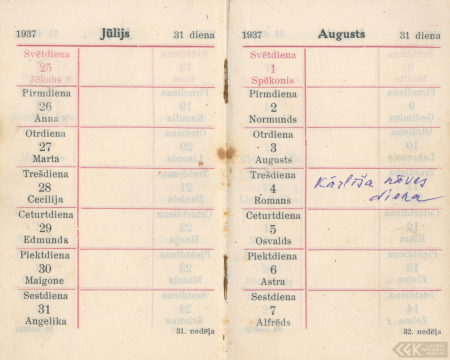 1937 Jūlijs 31 diena
Svētdiena
25
Jēkabs
Pirmdiena
26
Anna
Otrdiena
27
Marta
Trešdiena
28
Cecilija
Ceturtdiena
29
Edmunds
Piektdiena
30
Maigone
Sestdiena
31
Angelika
31. nedēļa
1937 Augusts 31 diena
Svētdiena
1
Spēkonis
Pirmdiena
2
Normunds
Otrdiena
3
Augusts
Trešdiena
4
Romans
Kārlīša nāves
diena
Ceturtdiena
5
Osvalds
Piektdiena
6
Astra
Sestdiena
7
Alfrēds
32. nedēļa